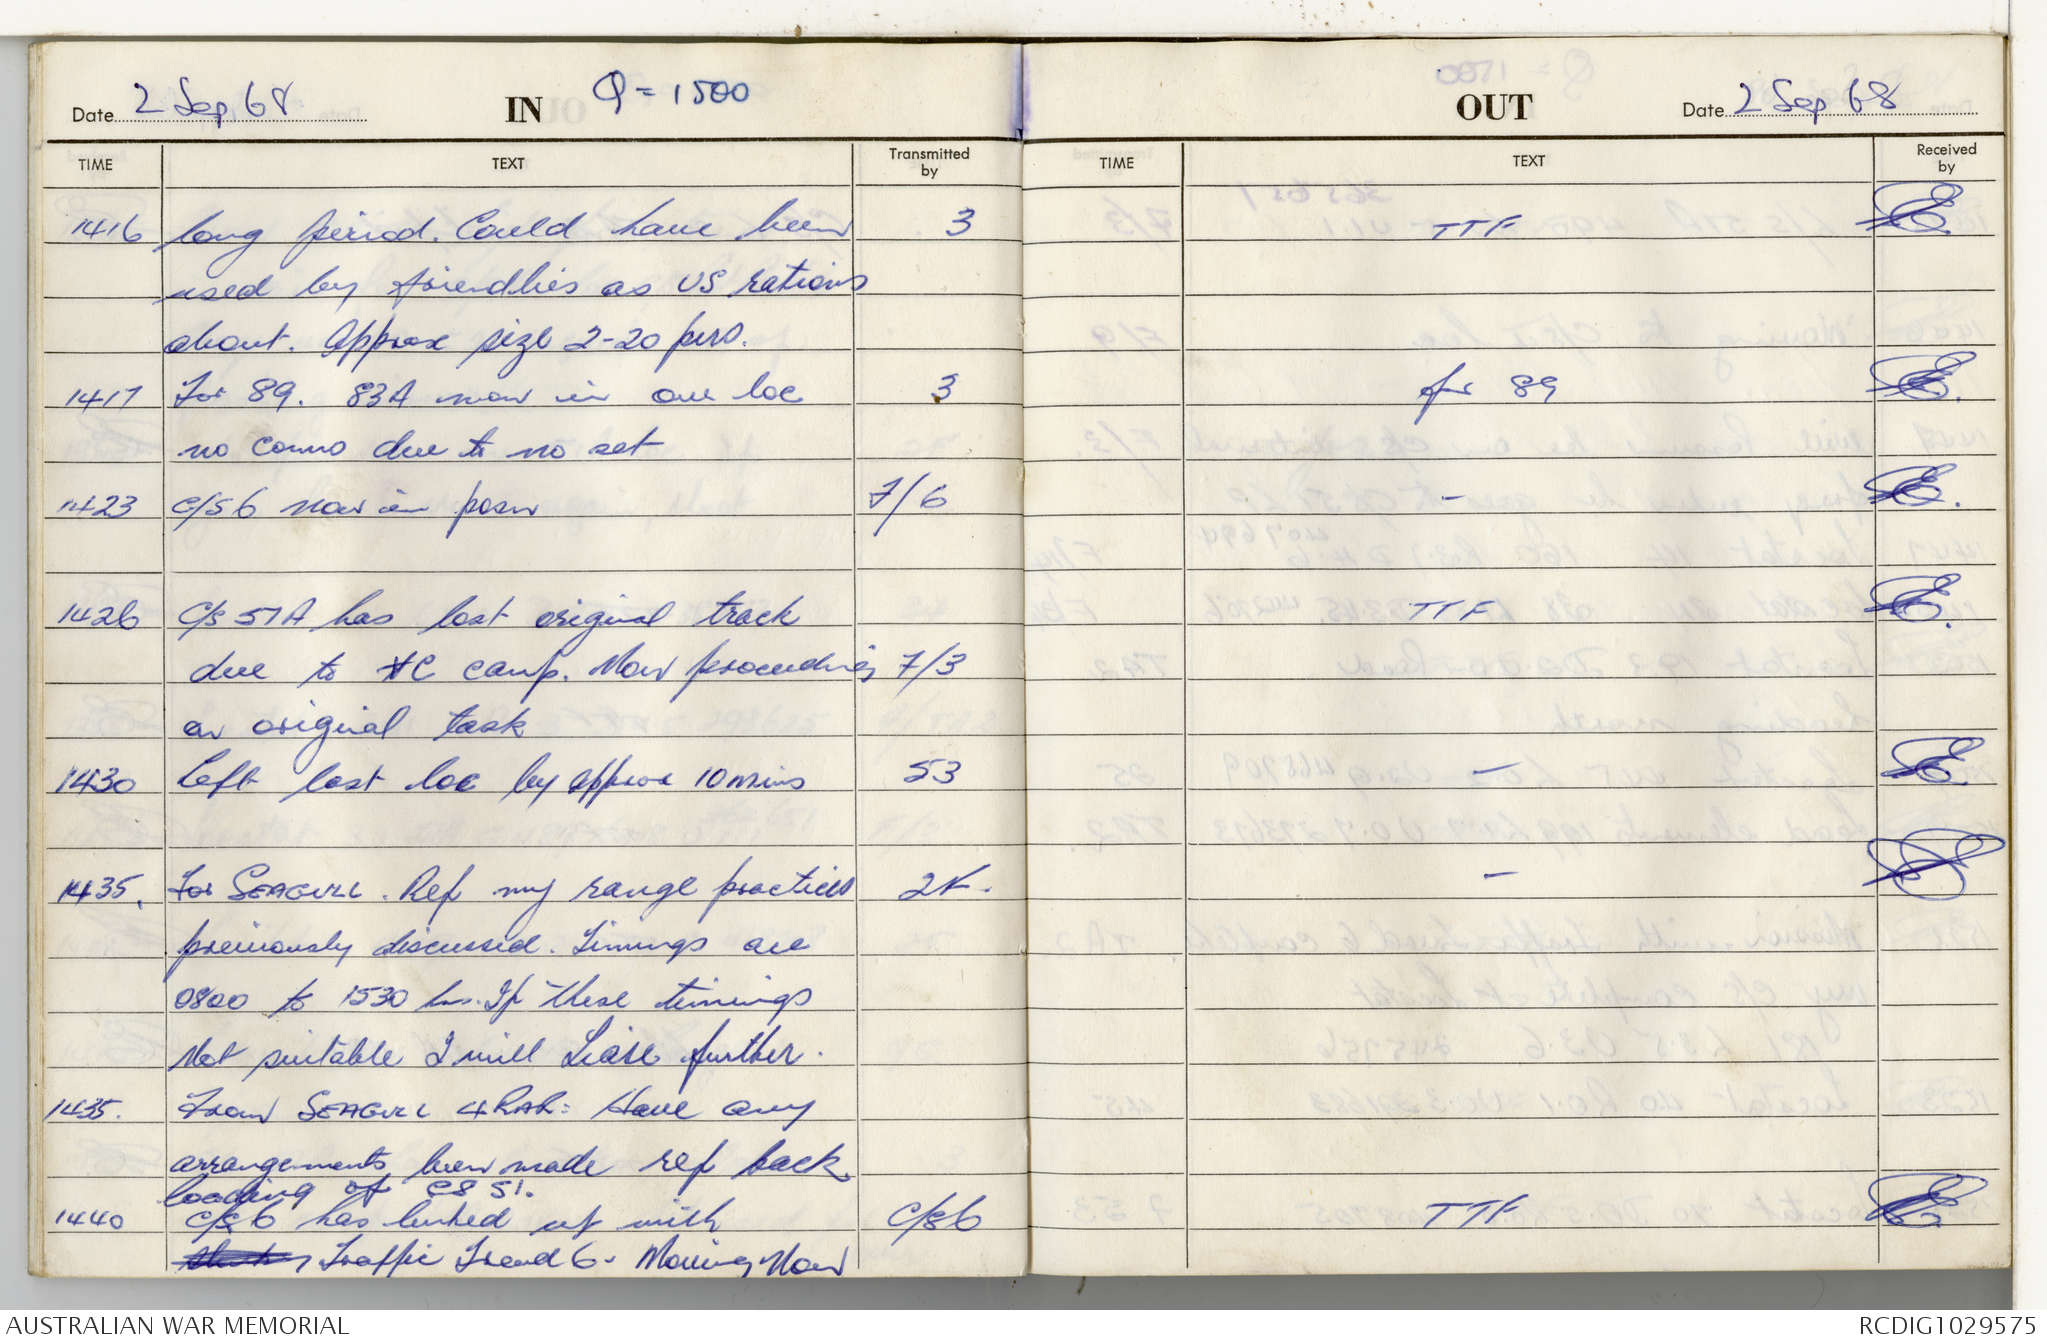 Date 2 Sep 68 IN Q = 1500
TIME TEXT Transmitted by
1416 long period. Could have been 3
used by friendlies as US rations
about. Approx size 2-20 pers.
1417 For 89. 83A now in our loc 3
no commo due to no set
1423 C/S 6 now in posn 7/6
1426 C/S 51A has lost original track
due to VC camp. Now proceeding 7/3
on original task
1430 Left last loc by approx 10 mins 53
1435. For SEAGULL. Ref my range practices
previously discussed. Timings are
0800 to 1530 hrs. If these timings
Not suitable I will Liase further.
1435. From SEAGULL 4RAR: Have any
arrangements been made ref back
loading of CS 51.
1440 C/S 6 has linked up with C/S 6
Traffic Trend 6. Moving Now
OUT Date 2 Sep 68
TIME TEXT Received by
TTF
for 89
-
TTF
-
-
TTF
AUSTRALIAN WAR MEMORIAL RCDIG1029575